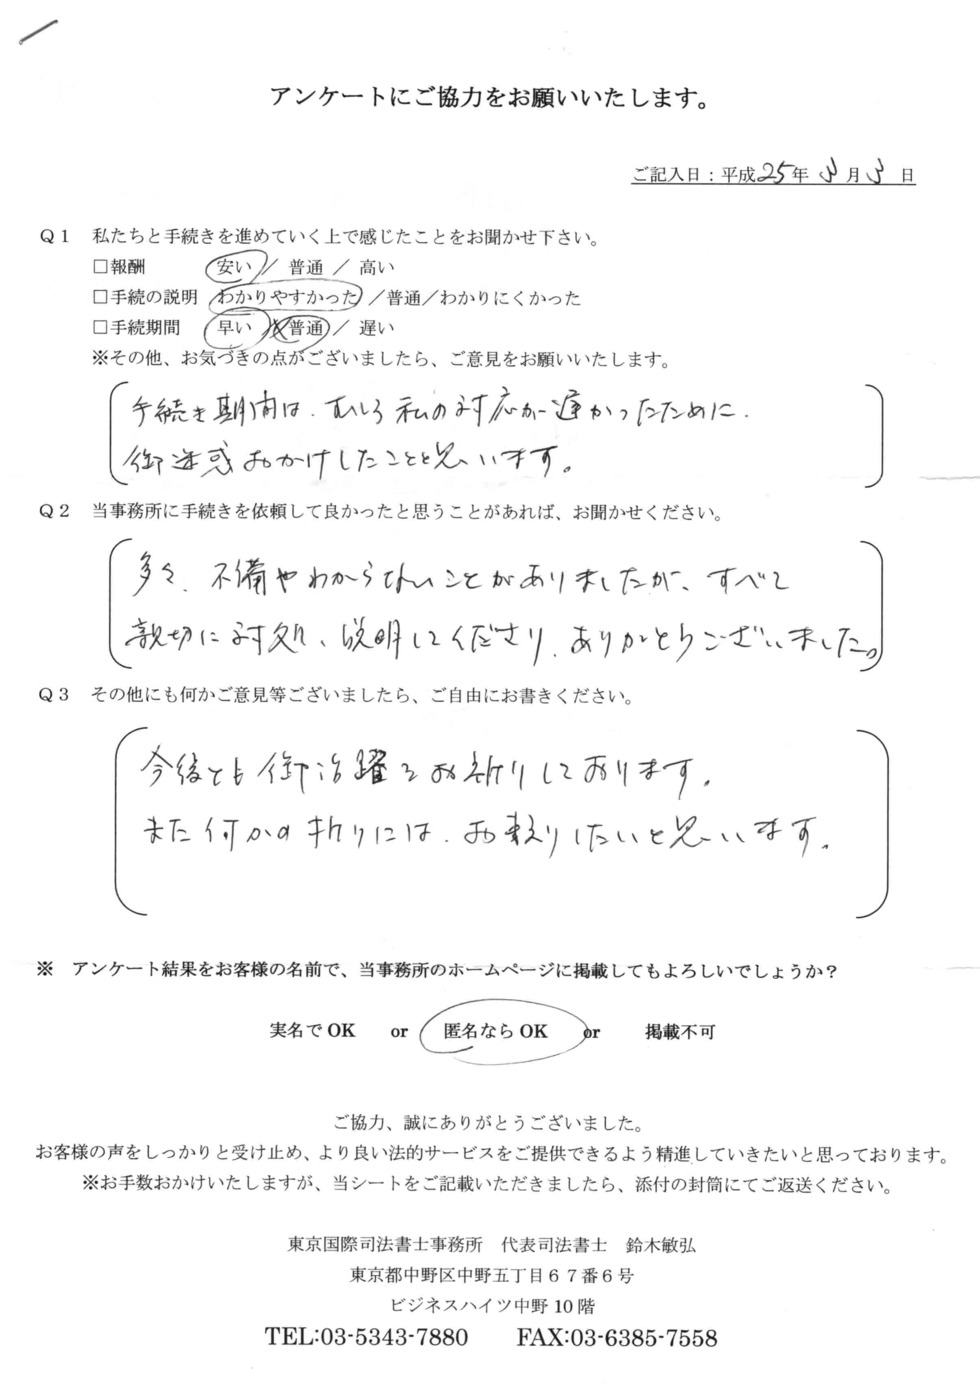 アンケートにご協力をお願いいたします。
ご記入日：平成25年3月3日
Q1 私たちと手続きを進めていく上で感じたことをお聞かせ下さい。
□報酬 安い / 普通 / 高い
□手続の説明 わかりやすかった /普通/わかりにくかった
□手続期間 早い / 普通 / 遅い
※その他、お気づきの点がございましたら、ご意見をお願いいたします。
手続き期間は、むしろ私の対応が遅かったために、
御迷惑おかけしたことと思います。
Q2 当事務所に手続きを依頼して良かったと思うことがあれば、お聞かせください。
多々、不備やわからないことがありましたが、すべて
親切に対処、説明してくださり、ありがとうございました。
Q3 その他にも何かご意見等ございましたら、ご自由にお書きください。
今後とも御活躍をお祈りしております。
また何かの折りには、お頼りしたいと思います。
※ アンケート結果をお客様の名前で、当事務所のホームページに掲載してもよろしいでしょうか？
実名でOK or 匿名ならOK or 掲載不可
ご協力、誠にありがとうございました。
お客様の声をしっかりと受け止め、より良い法的サービスをご提供できるよう精進していきたいと思っております。
※お手数おかけいたしますが、当シートをご記載いただきましたら、添付の封筒にてご返送ください。
東京国際司法書士事務所 代表司法書士 鈴木敏弘
東京都中野区中野五丁目67番6号
ビジネスハイツ中野10階
TEL:03-5343-7880 FAX:03-6385-7558